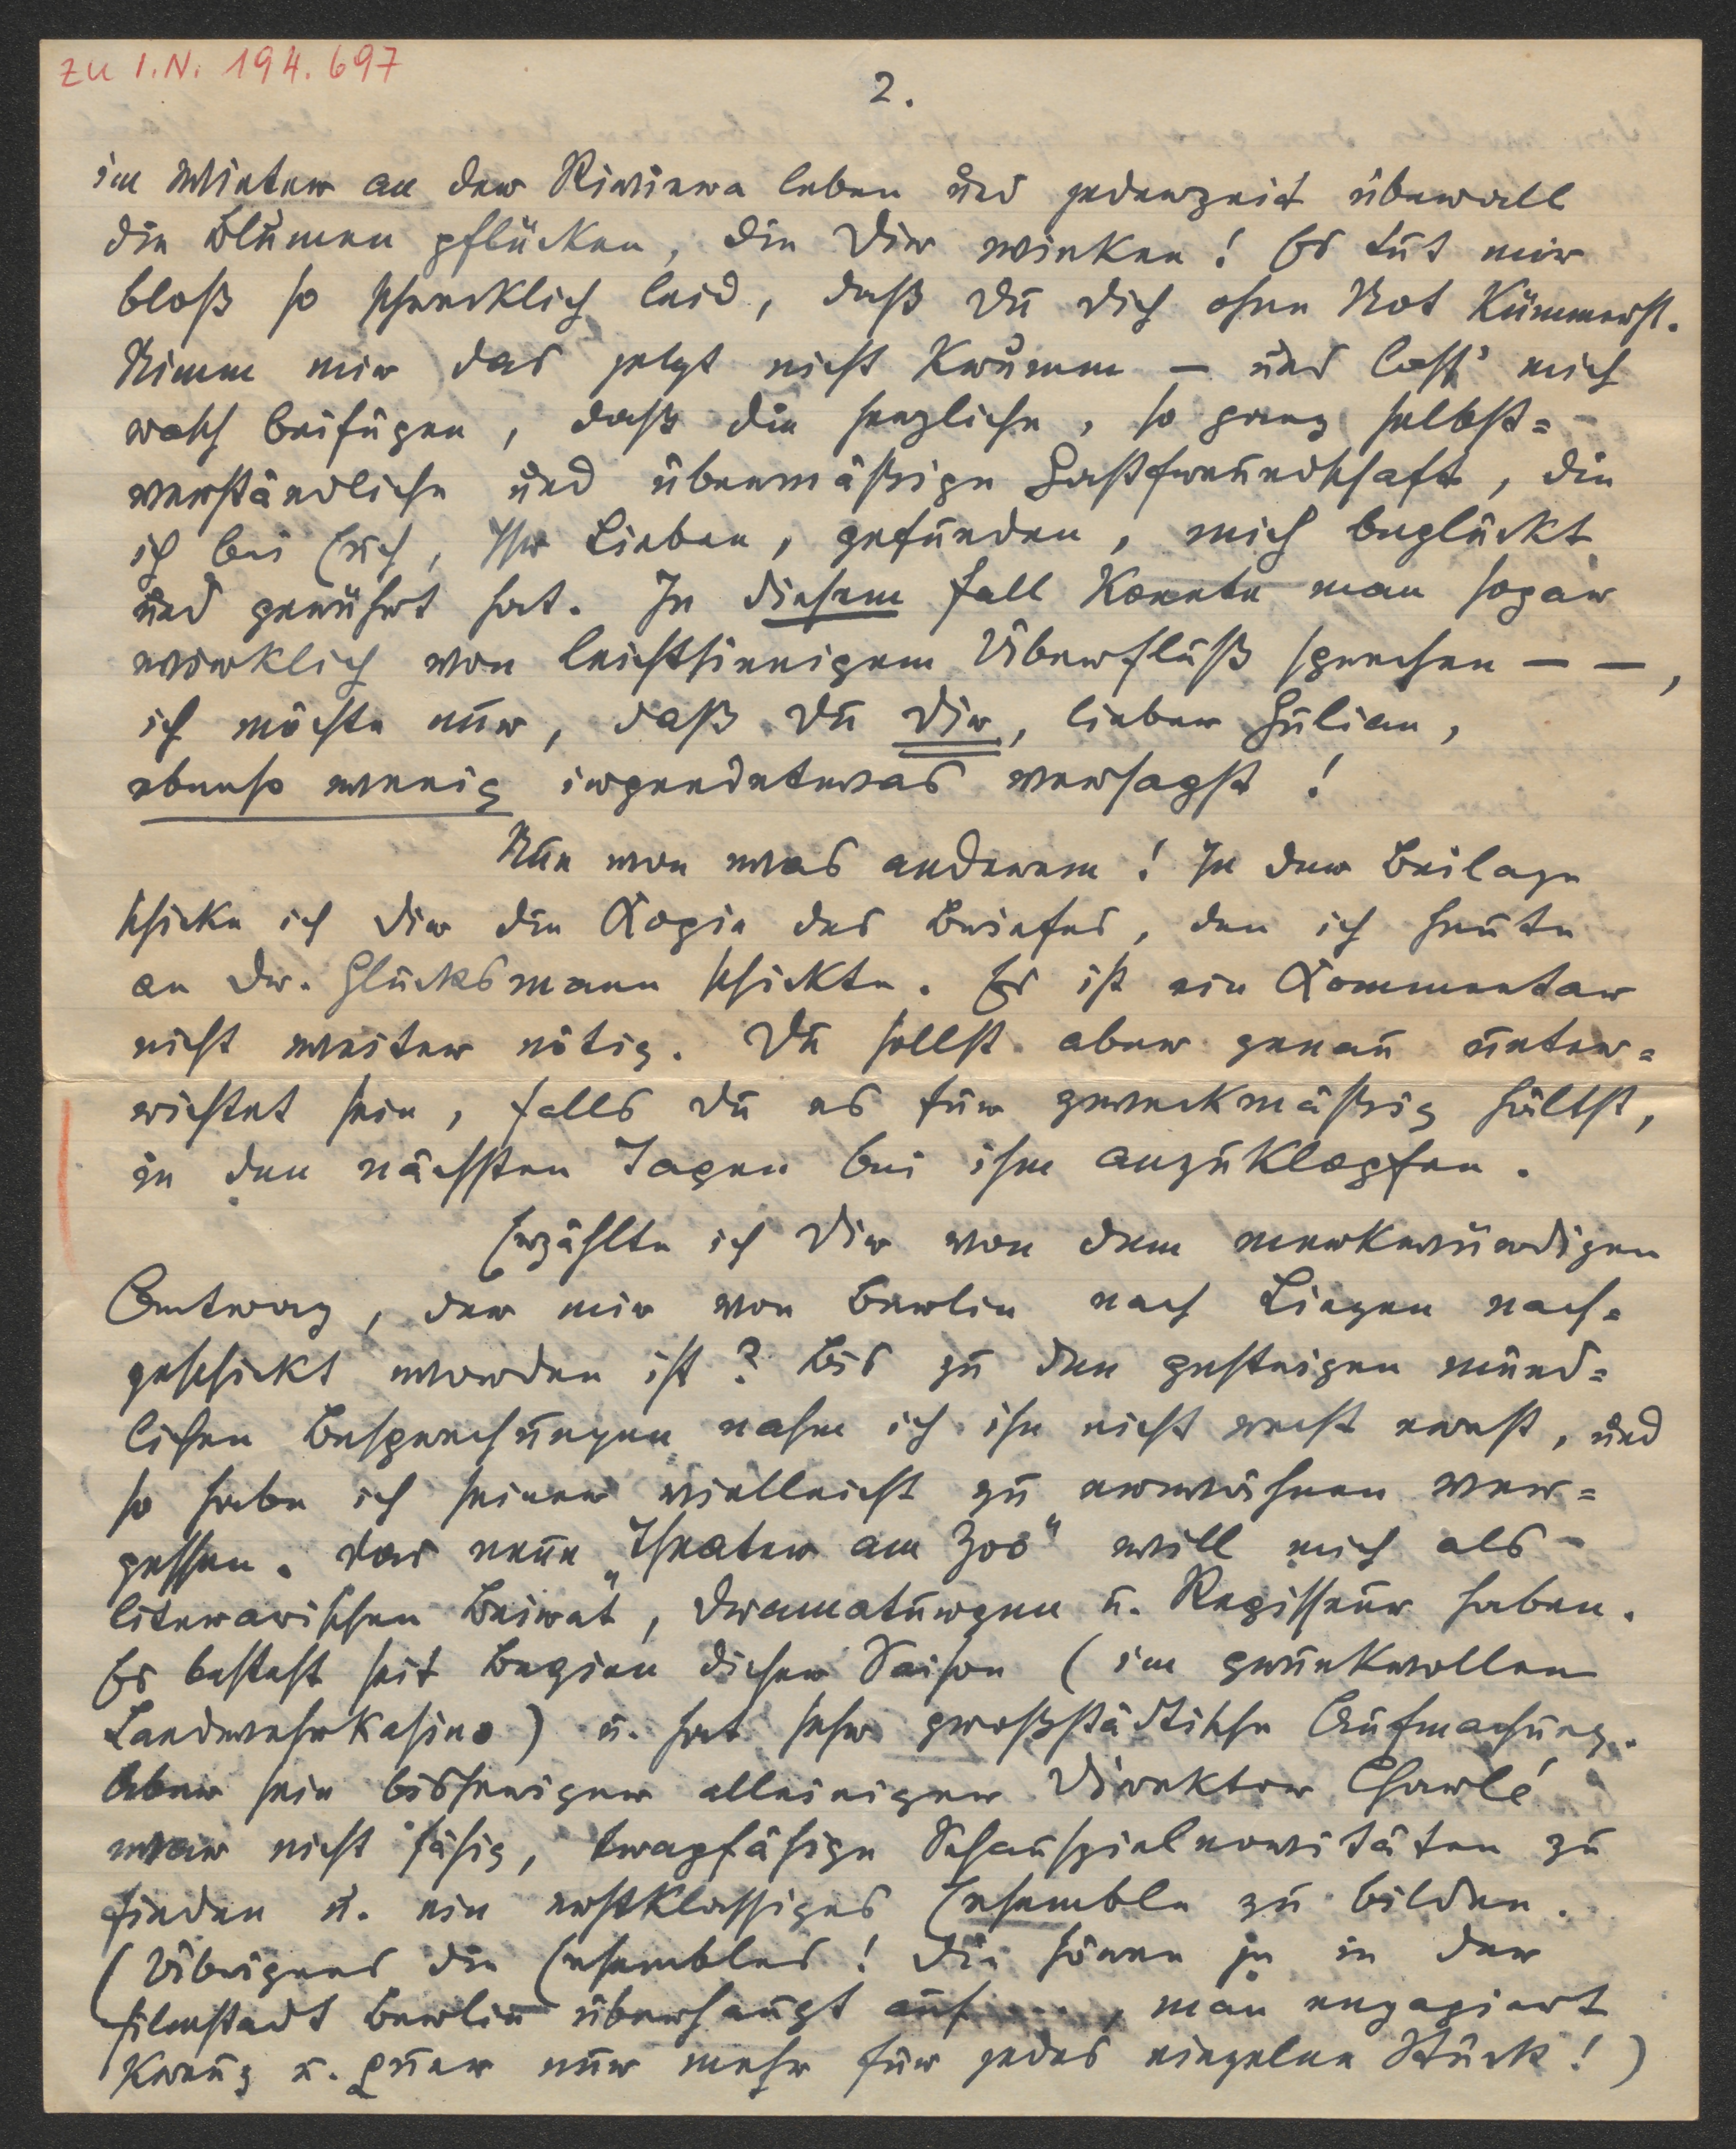 zu I.N. 194.697
2.
im Winter an der Riviera leben und jederzeit überall
die Blumen pflücken, die Dir winken! Es tut mir
bloß so schrecklich leid, daß Du Dich ohne Not kümmerst.
Nimm mir das jetzt nicht krumm – und lass' mich
rasch beifügen, daß die herzliche, so ganz selbst=
verständliche und übermäßige Gastfreundschaft, die
ich bei Euch, Ihr Lieben, gefunden, mich beglückt
und gerührt hat. In diesem Fall könnte man sogar
wirklich von leichtsinnigem Überfluß sprechen – –,
ich möchte nur, daß Du Dir, lieber Julian,
ebenso wenig irgendetwas versagst!
Nun von was anderem! In der Beilage
schicke ich Dir die Kopie des Briefes, den ich heute
an Dr. Glücksmann schickte. Es ist ein Kommentar
nicht weiter nötig. Du sollst aber genau unter=
richtet sein, falls Du es für zweckmäßig hältst,
in den nächsten Tagen bei ihm anzuklopfen.
Erzählte ich Dir von dem merkwürdigen
Antrag, der mir von Berlin nach Lingen nach=
geschickt worden ist? Bis zu den gestrigen münd=
lichen Besprechungen nahm ich ihn nicht recht ernst, und
so habe ich seiner vielleicht zu erwähnen ver=
gessen. Das neue „Theater am Zoo" will mich als
literarischen Beirat, Dramaturgen u. Regisseur haben.
Es besteht seit Beginn dieser Saison (im prunkvollen
Landwehrkasino) u. hat sehr großstädtische Aufmachung.
Aber sein bisheriger alleiniger Direktor Charlé
war nicht fähig, tragfähige Schauspielnovitäten zu
finden u. ein erstklassiges Ensemble zu bilden.
(Übrigens die Ensembles! Die hören ja in der
Filmstadt Berlin überhaupt auf ...., man engagiert
kreuz u. quer nur mehr für jedes einzelne Stück!)